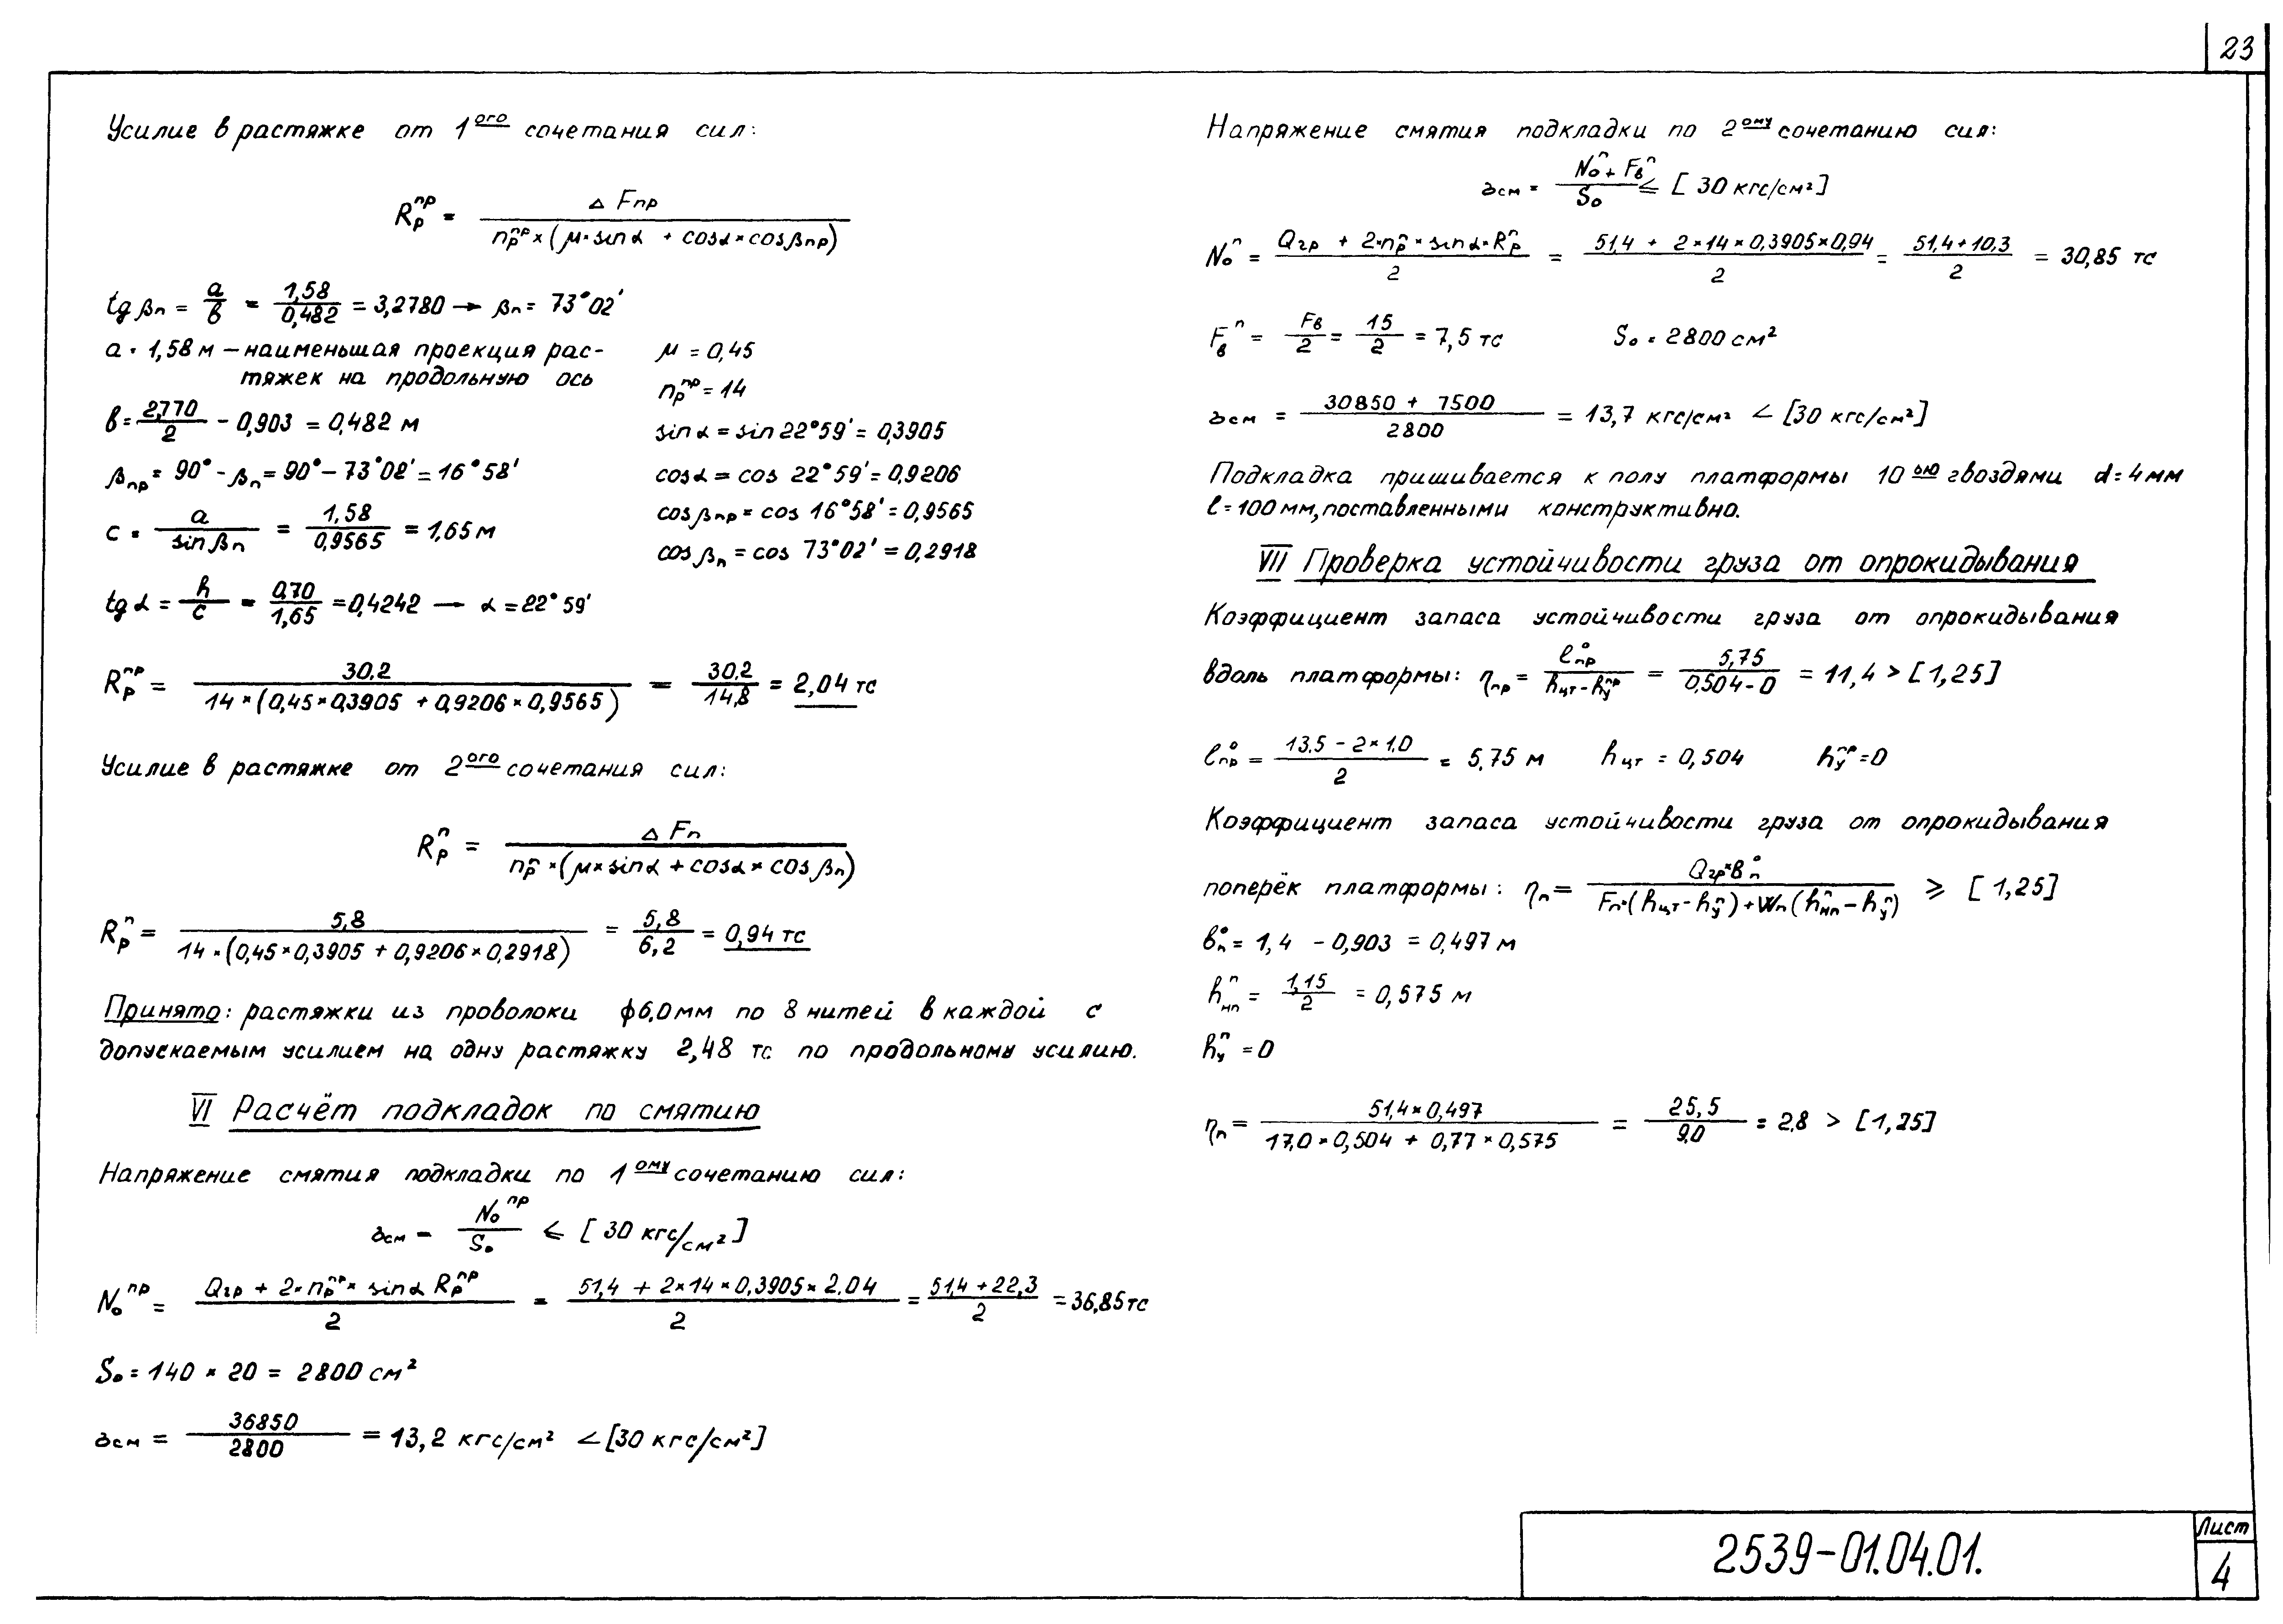 23
Усилие в растяжке от 1ого сочетания сил:
Rрпр = ΔFпр / nрпр×(μ·sinα + cosα×cosβпр)
tgβп = a/в = 1,58/0,482 = 3,2780 → βп = 73°02'
a = 1,58 м – наименьшая проекция рас-
тяжек на продольную ось
в = 2,770/2 - 0,903 = 0,482 м
βпр = 90° - βп = 90° - 73°02' = 16°58'
c = a/sinβп = 1,58/0,9565 = 1,65 м
tgα = h/c = 0,70/1,65 = 0,4242 — α = 22°59'
μ = 0,45
nрпр = 14
sinα = sin22°59' = 0,3905
cosα = cos 22°59' = 0,9206
cosβпр = cos 16°58' = 0,9565
cosβп = cos 73°02' = 0,2918
Rрпр = 30,2 / 14×(0,45×0,3905 + 0,9206×0,9565) = 30,2/14,8 = 2,04 тс
Усилие в растяжке от 2ого сочетания сил:
Rрп = ΔFп / nрп×(μ×sinα + cosα×cosβп)
Rрп = 5,8 / 14×(0,45×0,3905 + 0,9206×0,2918) = 5,8/6,2 = 0,94 тс
Принято: растяжки из проволоки ф6,0мм по 8 нитей в каждой с
допускаемым усилием на одну растяжку 2,48 тс по продольному усилию.
VI Расчёт подкладок по смятию
Напряжение смятия подкладки по 1ому сочетанию сил:
σсм = Nопр/Sо ≤ [30 кгс/см²]
Nопр = Qгр + 2·nрпр×sinα Rрпр / 2 = 51,4 + 2×14×0,3905×2,04 / 2 = 51,4+22,3 / 2 = 36,85 тс
Sо = 140 × 20 = 2800 см²
σсм = 36850/2800 = 13,2 кгс/см² < [30 кгс/см²]
Напряжение смятия подкладки по 2ому сочетанию сил:
σсм = Nоп + Fвп / Sо ≤ [30 кгс/см²]
Nоп = Qгр + 2·nрп×sinα·Rрп / 2 = 51,4 + 2×14×0,3905×0,94 / 2 = 51,4+10,3 / 2 = 30,85 тс
Fвп = Fв/2 = 15/2 = 7,5 тс Sо = 2800 см²
σсм = 30850 + 7500 / 2800 = 13,7 кгс/см² < [30 кгс/см²]
Подкладка пришивается к полу платформы 10ью гвоздями d=4мм
ℓ=100мм, поставленными конструктивно.
VII Проверка устойчивости груза от опрокидывания
Коэффициент запаса устойчивости груза от опрокидывания
вдоль платформы: ηпр = ℓпр° / hцт - hупр = 5,75 / 0,504-0 = 11,4 > [1,25]
ℓпр° = 13,5 - 2×1,0 / 2 = 5,75 м hцт = 0,504 hупр = 0
Коэффициент запаса устойчивости груза от опрокидывания
поперёк платформы: ηп = Qгр×вп° / Fп·(hцт - hуп) + Wп(hнпп - hуп) ≥ [1,25]
вп° = 1,4 - 0,903 = 0,497 м
hнпп = 1,15/2 = 0,575 м
hуп = 0
ηп = 51,4×0,497 / 17,0×0,504 + 0,77×0,575 = 25,5/9,0 = 2,8 > [1,25]
2539-01.04.01.
Лист
4